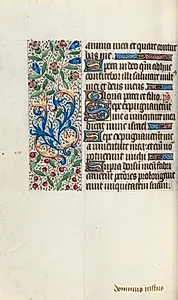 anima mea et quare contur
bas me
Spera in deo qm adhuc
confitebor illi salutare vult
mei et deus meus
Gloria patri et filio
Sepe expugnaverunt
me a iuventute mea
dicat nunc israel
Sepe expugnaverunt me
a iuventute mea et eni no
potuerunt michi
Supra dorsum meum fabri
caverunt peccatores prolongave
runt iniquitatem suam
dominus iustus